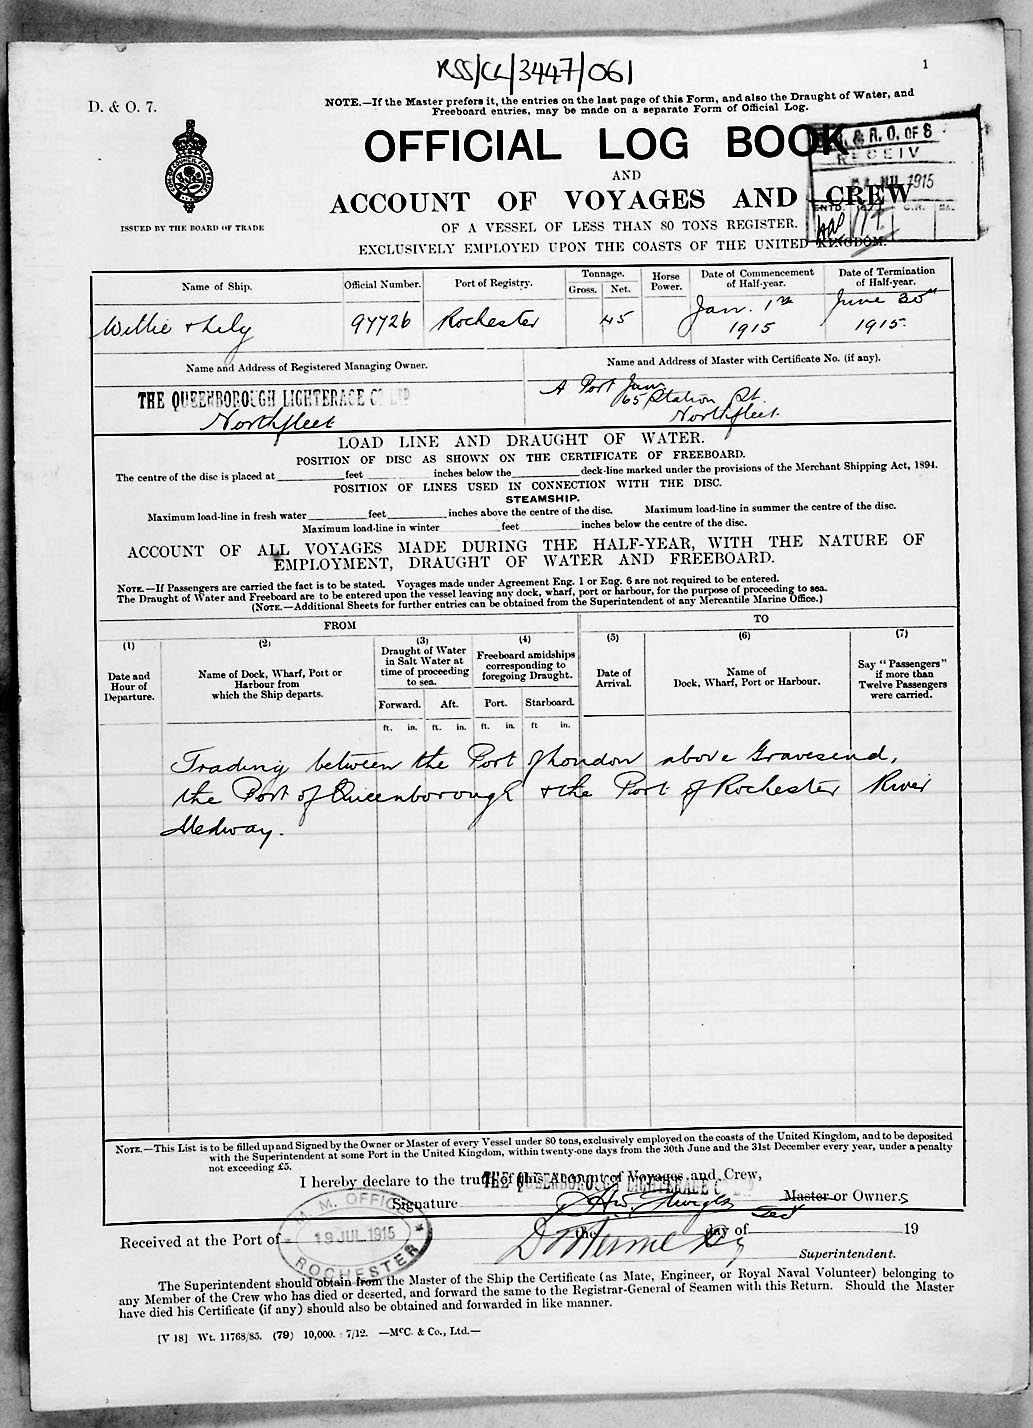 RSS/CL/3447/061
1
D. & O. 7.
NOTE.—If the Master prefers it, the entries on the last page of this Form, and also the Draught of Water, and
Freeboard entries, may be made on a separate Form of Official Log.
OFFICIAL LOG BOOK
AND
ACCOUNT OF VOYAGES AND CREW
OF A VESSEL OF LESS THAN 80 TONS REGISTER.
EXCLUSIVELY EMPLOYED UPON THE COASTS OF THE UNITED KINGDOM.
ISSUED BY THE BOARD OF TRADE
& R. O. OF S
RECEIV
JUL 1915
Name of Ship.
Official Number.
Port of Registry.
Tonnage.
Gross.
Net.
Horse Power.
Date of Commencement of Half-year.
Date of Termination of Half-year.
Willie & Lily
97726
Rochester
45
Jan. 1st 1915
June 30th 1915.
Name and Address of Registered Managing Owner.
Name and Address of Master with Certificate No. (if any).
THE QUEENBOROUGH LIGHTERAGE CO LTD
Northfleet
A Port
65 Station St.
Northfleet.
LOAD LINE AND DRAUGHT OF WATER.
POSITION OF DISC AS SHOWN ON THE CERTIFICATE OF FREEBOARD.
The centre of the disc is placed at feet inches below the deck-line marked under the provisions of the Merchant Shipping Act, 1894.
POSITION OF LINES USED IN CONNECTION WITH THE DISC.
STEAMSHIP.
Maximum load-line in fresh water feet inches above the centre of the disc. Maximum load-line in summer the centre of the disc.
Maximum load-line in winter feet inches below the centre of the disc.
ACCOUNT OF ALL VOYAGES MADE DURING THE HALF-YEAR, WITH THE NATURE OF
EMPLOYMENT, DRAUGHT OF WATER AND FREEBOARD.
NOTE.—If Passengers are carried the fact is to be stated. Voyages made under Agreement Eng. 1 or Eng. 6 are not required to be entered.
The Draught of Water and Freeboard are to be entered upon the vessel leaving any dock, wharf, port or harbour, for the purpose of proceeding to sea.
(NOTE.—Additional Sheets for further entries can be obtained from the Superintendent of any Mercantile Marine Office.)
FROM
TO
(1)
Date and
Hour of
Departure.
(2)
Name of Dock, Wharf, Port or
Harbour from
which the Ship departs.
(3)
Draught of Water
in Salt Water at
time of proceeding
to sea.
Forward.
Aft.
(4)
Freeboard amidships
corresponding to
foregoing Draught.
Port.
Starboard.
(5)
Date of
Arrival.
(6)
Name of
Dock, Wharf, Port or Harbour.
(7)
Say "Passengers"
if more than
Twelve Passengers
were carried.
ft. in. ft. in. ft. in. ft in.
Trading between the Port of London above Gravesend,
the Port of Queenborough & the Port of Rochester River
Medway.
NOTE.—This List is to be filled up and Signed by the Owner or Master of every Vessel under 80 tons, exclusively employed on the coasts of the United Kingdom, and to be deposited
with the Superintendent at some Port in the United Kingdom, within twenty-one days from the 30th June and the 31st December every year, under a penalty
not exceeding £5.
I hereby declare to the truth of this Account of Voyages and Crew,
THE QUEENBOROUGH LIGHTERAGE
Signature
Master or Owners
M. M. OFFICE
19 JUL 1915
ROCHESTER
Received at the Port of the day of 19
Superintendent.
The Superintendent should obtain from the Master of the Ship the Certificate (as Mate, Engineer, or Royal Naval Volunteer) belonging to
any Member of the Crew who has died or deserted, and forward the same to the Registrar-General of Seamen with this Return. Should the Master
have died his Certificate (if any) should also be obtained and forwarded in like manner.
[V 18] Wt. 11768/85. (79) 10,000. 7/12. —McC. & Co., Ltd.—